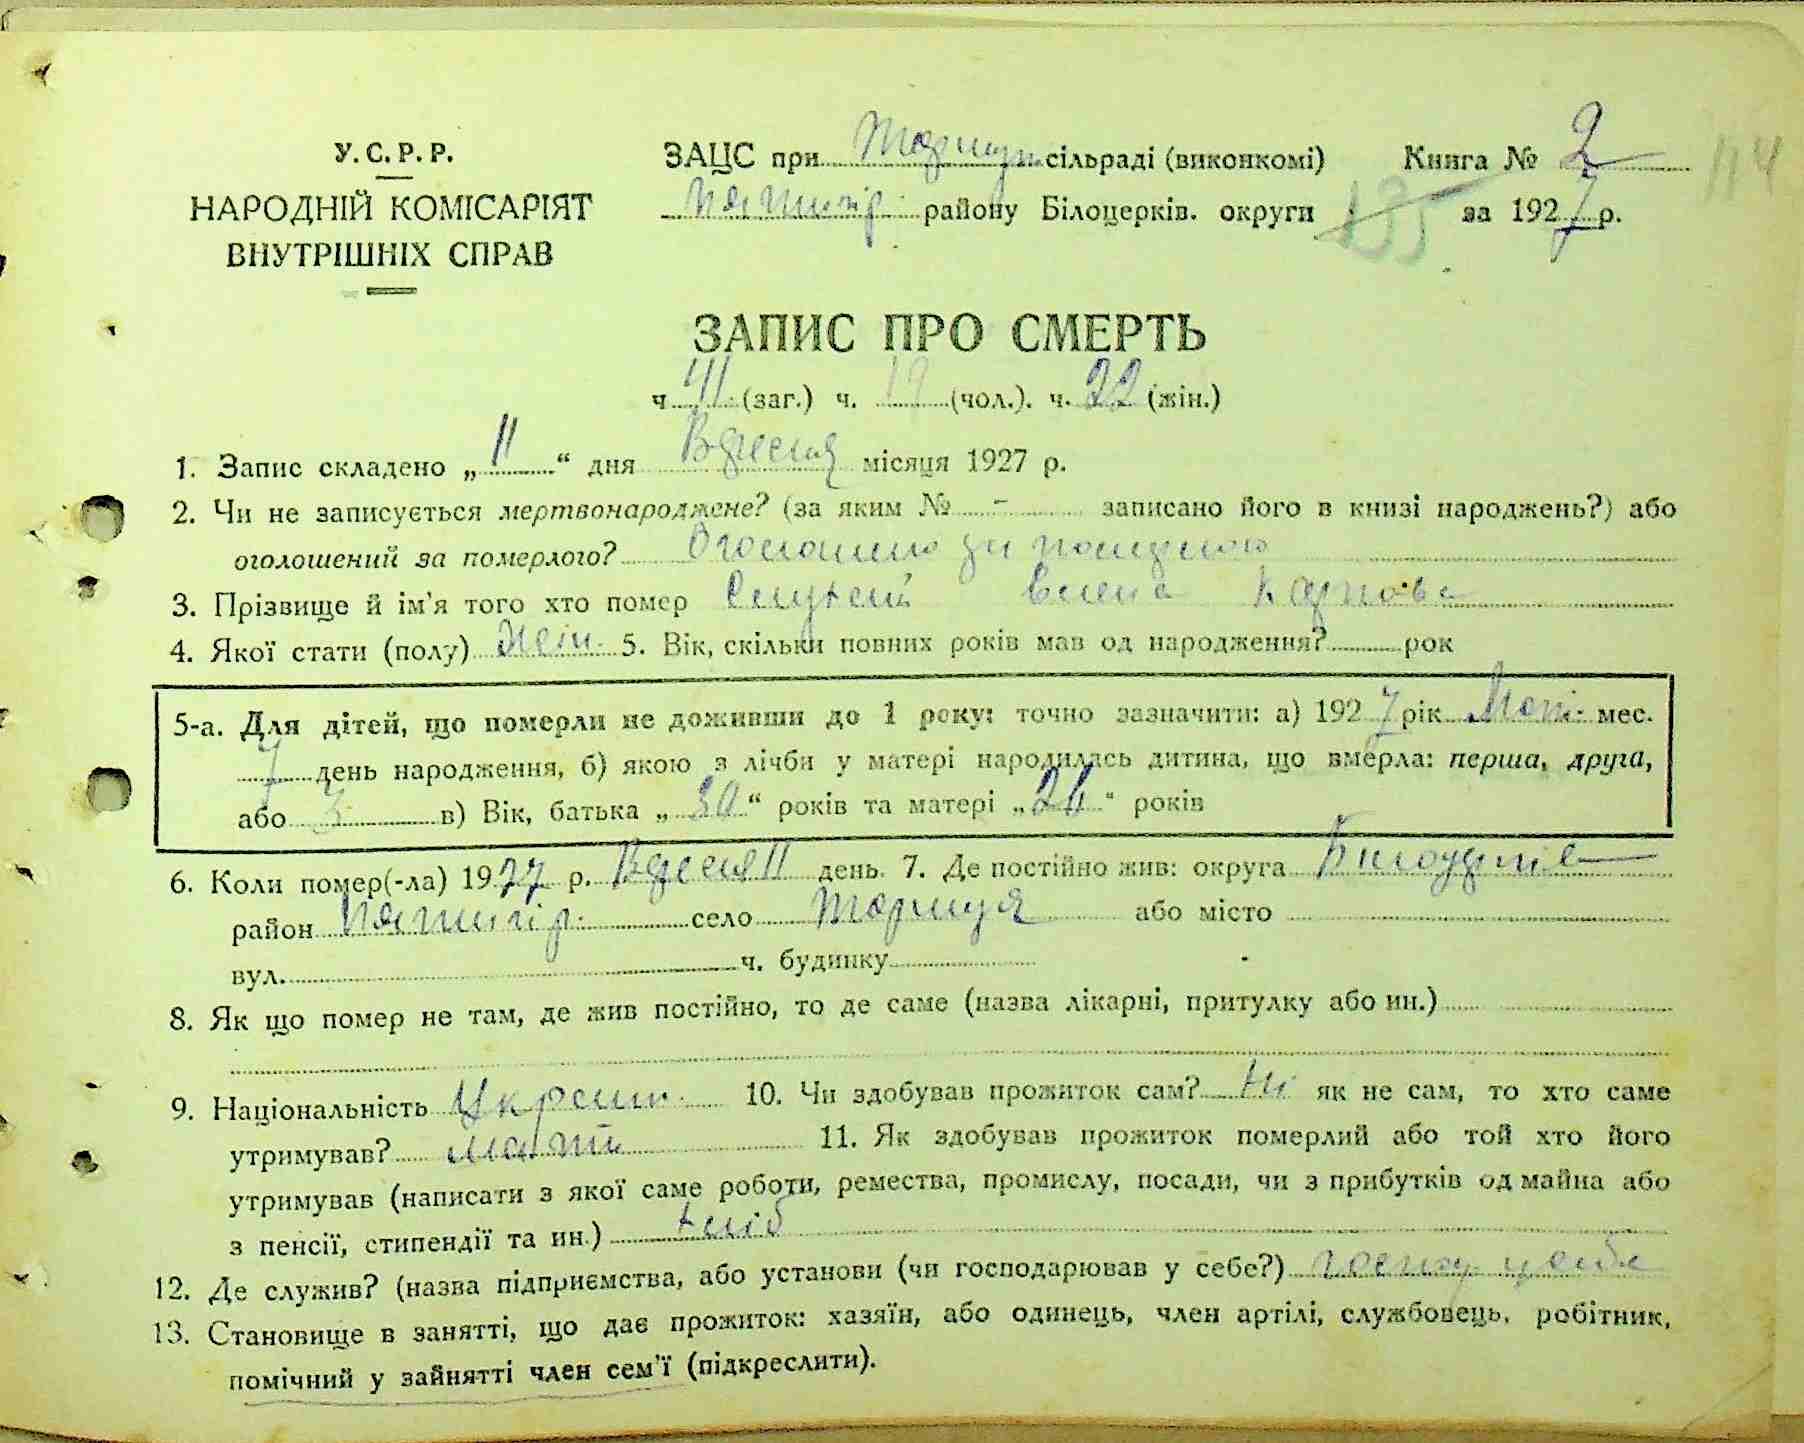 У. С. Р. Р.
НАРОДНІЙ КОМІСАРІЯТ
ВНУТРІШНІХ СПРАВ
ЗАЦС при Торчиц. сільраді (виконкомі) Книга № 2 114
Пятигір. району Білоцерків. округи 135 за 1927 р.
ЗАПИС ПРО СМЕРТЬ
ч 41 (заг.) ч. 19 (чол.). ч. 22 (жін.)
1. Запис складено „ 11 “ дня Вересня місяця 1927 р.
2. Чи не записується мертвонароджене? (за яким № - записано його в книзі народжень?) або
оголошений за померлого? Оголошено за померлою
3. Прізвище й ім'я того хто помер Елена Карпова
4. Якої стати (полу) жін. 5. Вік, скільки повних років мав од народження? рок
5-а. Для дітей, що померли не доживши до 1 року: точно зазначити: а) 1927 рік мес.
7 день народження, б) якою з лічби у матері народилась дитина, що вмерла: перша, друга,
або 3 в) Вік, батька „ 30 “ років та матері „ 26 “ років
6. Коли помер(-ла) 1927 р. Вересня 11 день. 7. Де постійно жив: округа Білоцерків
район Пятигір. село Торчиця або місто
вул. ч. будинку
8. Як що помер не там, де жив постійно, то де саме (назва лікарні, притулку або ин.)
9. Національність Украин. 10. Чи здобував прожиток сам? Ні як не сам, то хто саме
утримував? мати 11. Як здобував прожиток померлий або той хто його
утримував (написати з якої саме роботи, ремества, промислу, посади, чи з прибутків од майна або
з пенсії, стипендії та ин.) хліб
12. Де служив? (назва підприємства, або установи (чи господарював у себе?) госпо. у себе
13. Становище в занятті, що дає прожиток: хазяїн, або одинець, член артілі, службовець, робітник,
помічний у зайнятті член сем'ї (підкреслити).